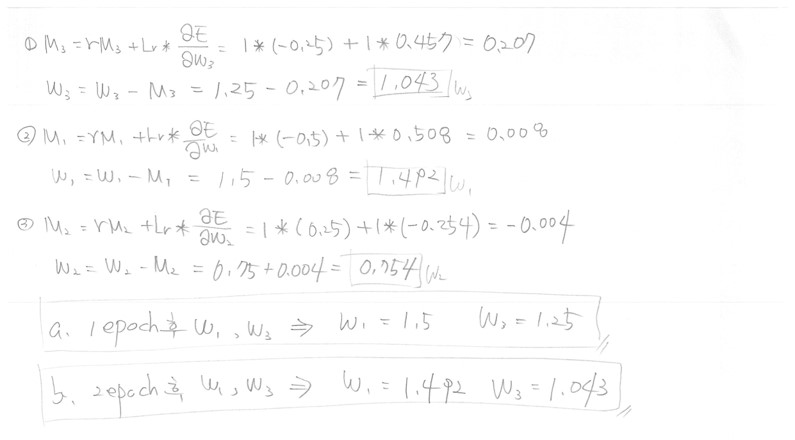 ① M₃ = rM₃ + Lr * ∂E/∂w₃ = 1*(-0.25) + 1*0.457 = 0.207
W₃ = W₃ - M₃ = 1.25 - 0.207 = 1.043 W₃
② M₁ = rM₁ + Lr * ∂E/∂w₁ = 1*(-0.5) + 1*0.508 = 0.008
W₁ = W₁ - M₁ = 1.5 - 0.008 = 1.492 W₁
③ M₂ = rM₂ + Lr * ∂E/∂w₂ = 1*(0.25) + 1*(-0.254) = -0.004
W₂ = W₂ - M₂ = 0.75 + 0.004 = 0.754 W₂
a. 1 epoch 후 W₁, W₃ ⇒ W₁ = 1.5 W₃ = 1.25
b. 2 epoch 후, W₁, W₃ ⇒ W₁ = 1.492 W₃ = 1.043